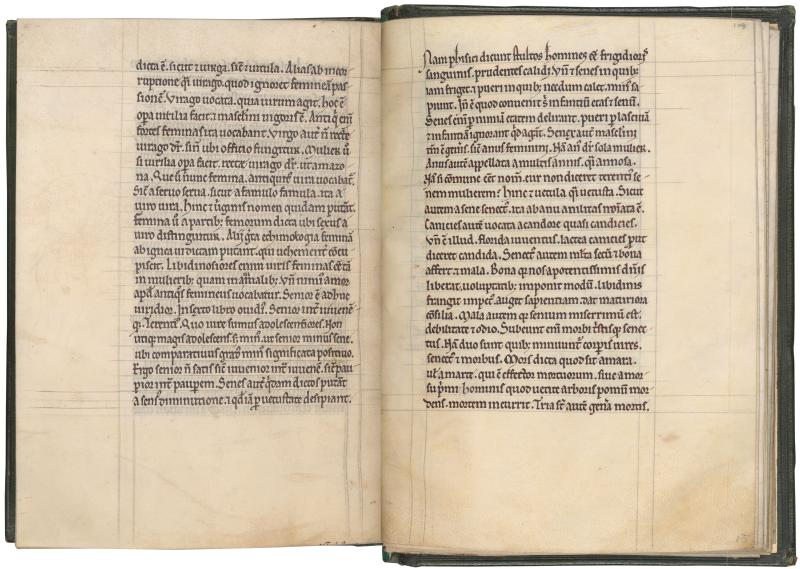 dicta ē. sicut ⁊ uirga. siẽ ⁊ uitula. Alias ab incor
ruptione qͥ uirago. quod ignoret femineā pas
sionē. Virago uocata. quia uirum agit. hoc ē
opa uirilia facit ⁊ masclini uigoris ē. Antiq̇ enī
fortes feminas ita uocabant. Virgo aut̄ ñ recte
uirago dr̄. si ñ uiri officio fungitur. Mulier ů
si uirilia opa facit. recte uirago dr̄. ut amazo
na. Que ů nunc femina. antiqͥtus uira uocabat᷑.
Sic̄ a seruo serua. sicut a famulo famula. ita a
uiro uira. Hinc ⁊ uͥginis nomen quidam putāt.
femina ů a partib; femorum dicta ubi sexus a
uiro distinguitur. Alij gͣca ethimologia feminā
ab ignea ui dictam putant. qui uehement̄ cōcu
piscit. Libidinosiores enim uiris feminas eē tā
in mulierib; quam in aīalib;. Vñ nimiꝰ amor
apď antiqͦs femineus uocabatur. Senior ē adhuc
uiridior. In sexto libro ouidiꝰ. Senior int̄ iuuenē
qͣ. Terentiꝰ. Quo iure sumus adolescentiores. Non
utiq; magis adolescens. s; minꝰ. ut senior minus sene.
ubi comparatiuus gradꝰ minꝰ significat a positiuo.
Ergo senior ñ satis sic̄ iuuenior int̄ iuuenē. sic̄ pau
pior int̄ paupem. Senes aut̄ qͥdam dictos putāt
a sensꝰ diminutione. ⁊ qď iā p uetustate desipiant.
Nam phisici dicunt stultos homines eē frigidioris
sanguinis. prudentes calidi. Vñ ⁊ senes in quib;
iam friget ⁊ pueri in quib; necdum calet. minꝰ sa
piunt. Iñ ē quod conuenit s; infantiū etas ⁊ senū.
Senes enī p nimiā etatem delirant. pueri p lasciuiā
⁊ infantiā ignorant qď agāt. Senex aut̄ masclini
tm̄ ē geñis. sic̄ anus feminini. Nā anꝰ dr̄ sola mulier.
Anus aut̄ appellata a multis annis. qͣ annosa.
Nā si cōmune eēt nom̄. cur non diceret terentiꝰ se
nem mulierem? Hinc ⁊ uetula qͣ uetusta. Sicut
autem a sene senectꝰ. ita ab anu anilitas noīata ē.
Canicies aut̄ uocata a candore quasi candicies.
Vñ ē illud. florida iuuentus. lactea canicies p ut
diceret candida. Senectꝰ autem mlta secū ⁊ bona
affert ⁊ mala. Bona qͣ nos a potentissimis dñis
liberat. uoluptatib; imponit modū. libidinis
frangit impetꝰ. auget sapientiam. dat maturiora
cōsilia. Mala autem qͣ senium miserrimū est.
debilitate ⁊ odio. Subeunt enī morbi tristisq; senec
tus. Nā duo sunt quib; minuunt᷑ corpis uires.
senectꝰ ⁊ morbus. Mors dicta quod sit amara.
ul̄ a marte. qui ē effector mortuorum. siue a mor
su pͥmi hominis quod uetite arboris pomū mor
dens. mortem incurrit. Tria st̄ aut̄ geña mortis.